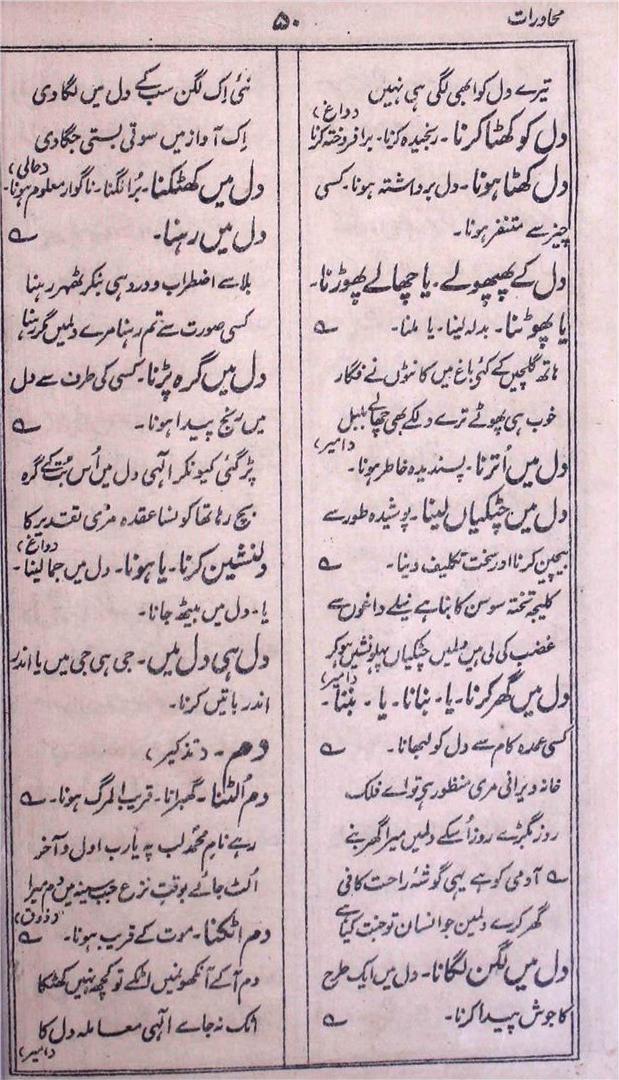 محاورات
۵۰
تیرے دل کو ابھی لگی ہی نہیں
(داغ)
دل کو کھٹا کرنا۔ رنجیدہ کرنا۔ برافروختہ کرنا
دل کھٹا ہونا۔ دل برداشتہ ہونا۔ کسی
چیز سے متنفر ہونا۔
دل کے پھپھولے۔ یا چھالے پھوڑنا۔
یا پھوٹنا۔ بدلہ لینا۔ یا ملنا۔ ؎
ہاتھ گلچیں کے کئی باغ میں کانٹوں نے فگار
خوب ہی پھوٹے ترے دلکے بھی چھالے بلبل
(امیر)
دل میں اُترنا۔ پسندیدہ خاطر ہونا۔
دل میں چٹکیاں لینا۔ پوشیدہ طور سے
بیچین کرنا اور سخت تکلیف دینا۔ ؎
کلیجہ تختہ سوسن کا بنا ہے نیلے داغوں سے
غضب کی لی ہیں دلمیں چٹکیاں پہلو نشیں ہو کر
(امیر)
دل میں گھر کرنا۔ یا۔ بنانا۔ یا۔ بننا۔
کسی عمدہ کام سے دل کو لبھانا۔ ؎
خانہ ویرانی مری منظور ہی تو اے فلک
روز بگڑے روز اُسکے دلمیں میرا گھر بنے
؎ آدمی کو ہے یہی گوشۂ راحت کافی
گھر کرے دلمین جو انسان تو جنت کیا ہے
دل میں لگن لگانا۔ دل میں ایک طرح
کا جوش پیدا کرنا۔ ؎
نئی اِک لگن سب کے دل میں لگا دی
اِک آواز میں سوتی بستی جگا دی
(حالی)
دل میں کھٹکنا۔ بُرا لگنا۔ ناگوار معلوم ہونا۔
دل میں رہنا۔ ؎
بلا سے اضطراب و درد ہی بنکر ٹھہر رہنا
کسی صورت سے تم رہنا مرے دلمیں مگر رہنا
دل میں گرہ پڑنا۔ کسی کی طرف سے دل
میں رنج پیدا ہونا۔ ؎
پڑ گئی کیونکر الٰہی دل میں اُس بُت کے گرہ
بچ رہا تھا کونسا عقدہ مری تقدیر کا
(داغ)
دلنشین کرنا۔ یا ہونا۔ دل میں جما لینا۔
یا۔ دل میں بیٹھ جانا۔
دل ہی دل میں۔ جی ہی جی میں یا اندر
اندر باتیں کرنا۔
دم۔ (تذکیر)
دم اُلٹنا۔ گھبرانا۔ قریب المرگ ہونا۔ ؎
رہے نام محمدؐ لب پہ یا رب اول و آخر
اُلٹ جائے بوقتِ نزع جب سینہ میں دم میرا
(ذوق)
دم اٹکنا۔ موت کے قریب ہونا۔ ؎
دم آکے آنکھونمیں اٹکے تو کچھ نہیں کھٹکا
اٹک نہ جاے الٰہی معاملہ دل کا
(امیر)